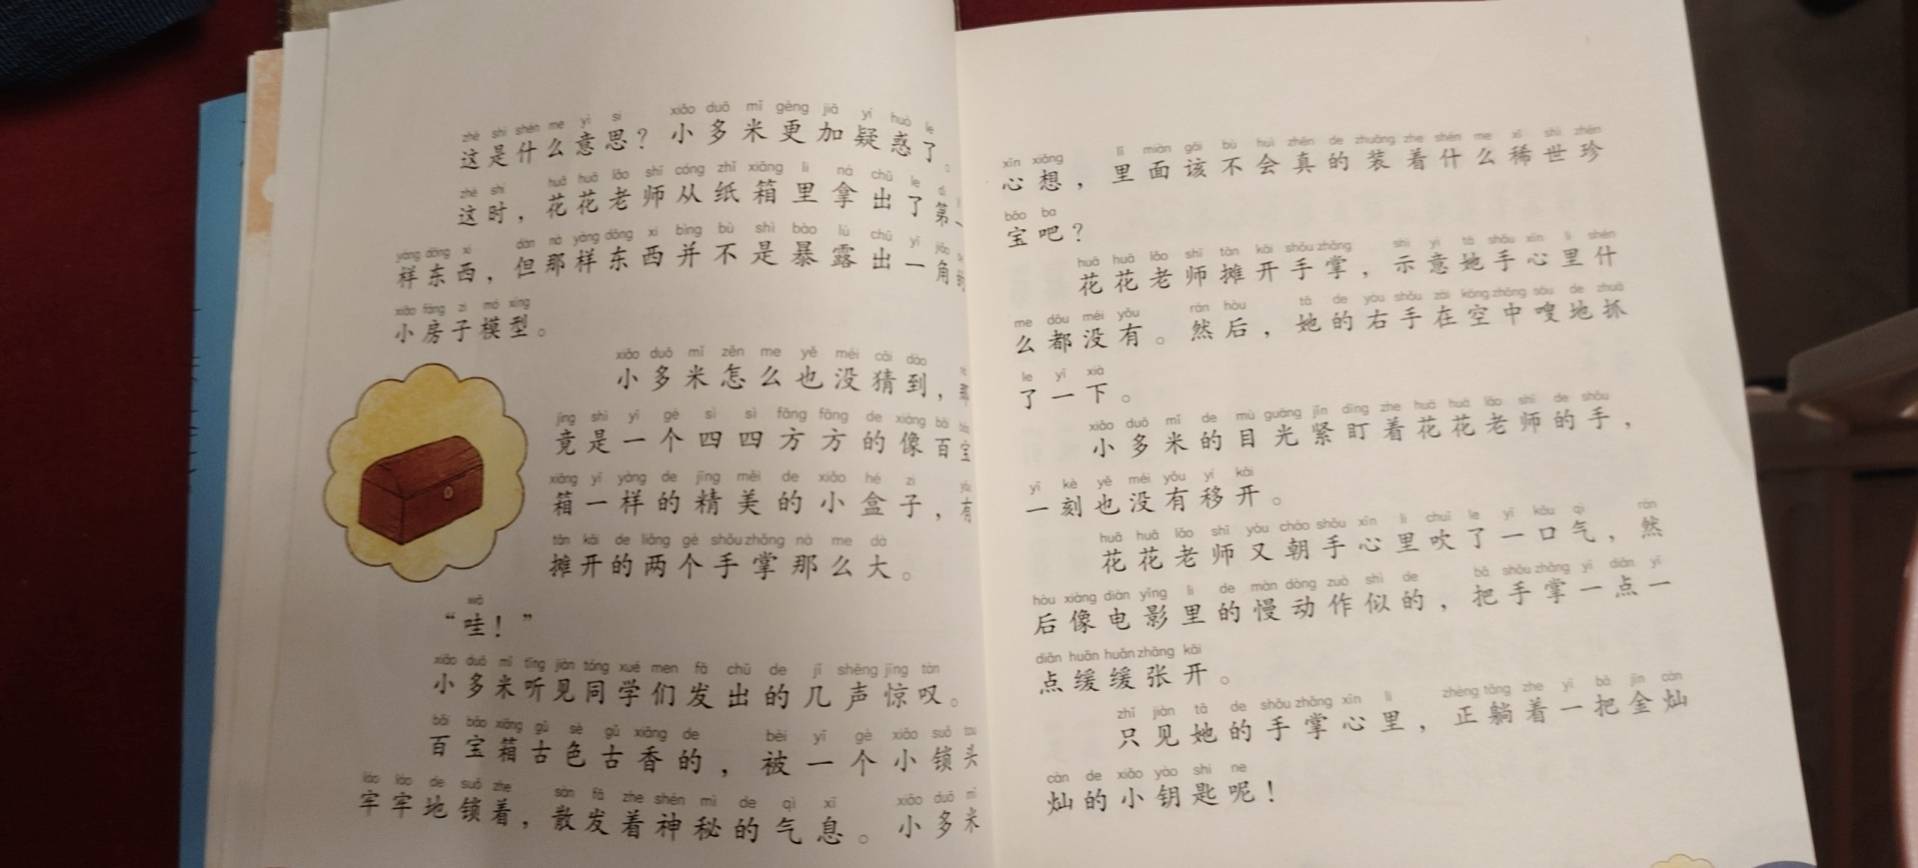 zhè shì shén me yì si xiǎo duō mǐ gèng jiā yí huò le
这是什么意思？小多米更加疑惑了。
zhè shí huā huā lǎo shī cóng zhǐ xiāng li ná chū le dì
这时，花花老师从纸箱里拿出了第
yàng dōng xi dàn nà yàng dōng xi bìng bù shì bào lù chū yì jiǎo
样东西，但那样东西并不是暴露出一角
xiǎo fáng zi mó xíng
小房子模型。
xiǎo duō mǐ zěn me yě méi cāi dào
小多米怎么也没猜到，那
jìng shì yí gè sì sì fāng fāng de xiàng bǎi bǎo
竟是一个四四方方的像百宝
xiāng yí yàng de jīng měi de xiǎo hé zi yǒu
箱一样的精美的小盒子，有
tān kāi de liǎng gè shǒu zhǎng nà me dà
摊开的两个手掌那么大。
wā
“哇！”
xiǎo duō mǐ tīng jiàn tóng xué men fā chū de jǐ shēng jīng tàn
小多米听见同学们发出的几声惊叹。
bǎi bǎo xiāng gǔ sè gǔ xiāng de bèi yí gè xiǎo suǒ tou
百宝箱古色古香的，被一个小锁头
láo láo de suǒ zhe sàn fā zhe shén mì de qì xī xiǎo duō mǐ
牢牢地锁着，散发着神秘的气息。小多米
xīn xiǎng lǐ miàn gāi bú huì zhēn de zhuāng zhe shén me xī shì zhēn
心想，里面该不会真的装着什么稀世珍
bǎo ba
宝吧？
huā huā lǎo shī tān kāi shǒu zhǎng shì yì tā shǒu xīn li shén
花花老师摊开手掌，示意她手心里什
me dōu méi yǒu rán hòu tā de yòu shǒu zài kōng zhōng sōu de zhuā
么都没有。然后，她的右手在空中嗖地抓
le yí xià
了一下。
xiǎo duō mǐ de mù guāng jǐn dīng zhe huā huā lǎo shī de shǒu
小多米的目光紧盯着花花老师的手，
yí kè yě méi yǒu yí kāi
一刻也没有移开。
huā huā lǎo shī yòu cháo shǒu xīn li chuī le yì kǒu qì rán
花花老师又朝手心里吹了一口气，然
hòu xiàng diàn yǐng li de màn dòng zuò shì de bǎ shǒu zhǎng yì diǎn yì
后像电影里的慢动作似的，把手掌一点一
diǎn huǎn huǎn zhāng kāi
点缓缓张开。
zhǐ jiàn tā de shǒu zhǎng xīn li zhèng tǎng zhe yì bǎ jīn càn
只见她的手掌心里，正躺着一把金灿
càn de xiǎo yào shi ne
灿的小钥匙呢！